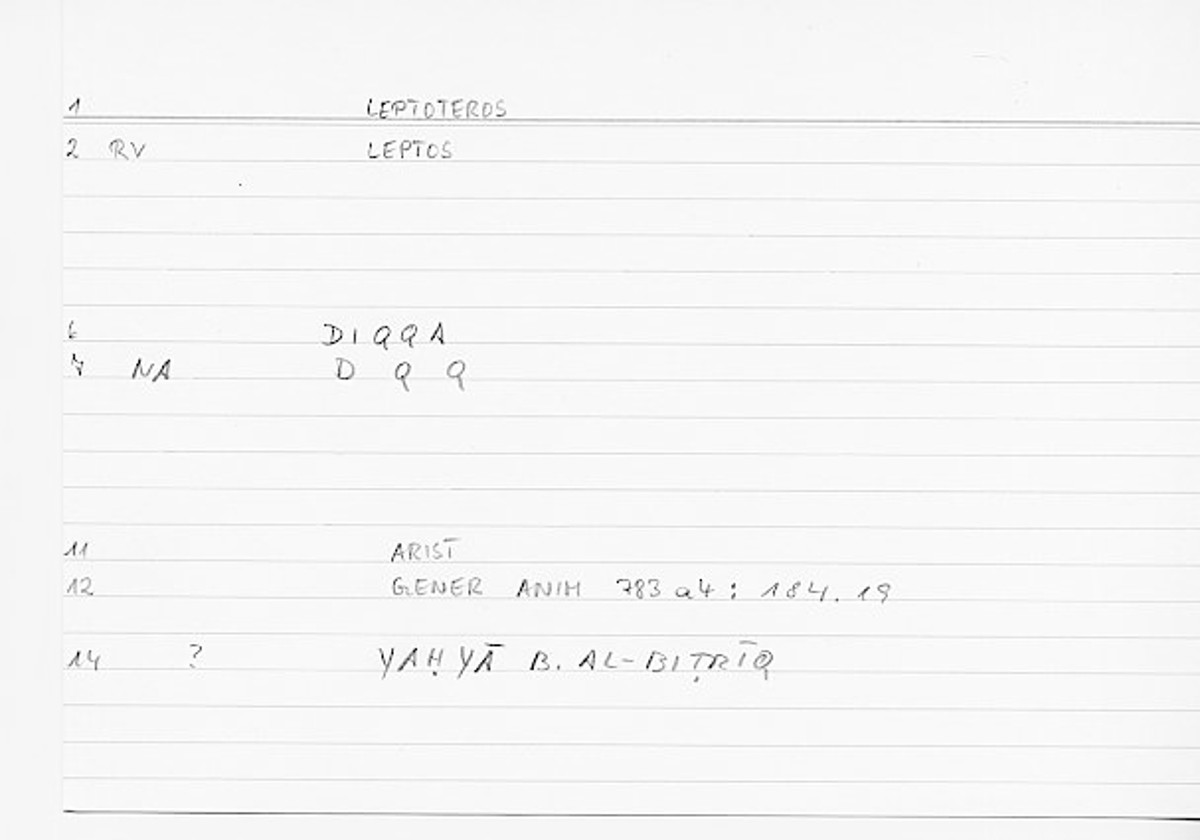 1 LEPTOTEROS
2 RV LEPTOS
6 DIQQA
7 NA D Q Q
11 ARIST
12 GENER ANIM 783 a4 : 184.19
14 ? YAḤYĀ B. AL-BIṬRĪQ